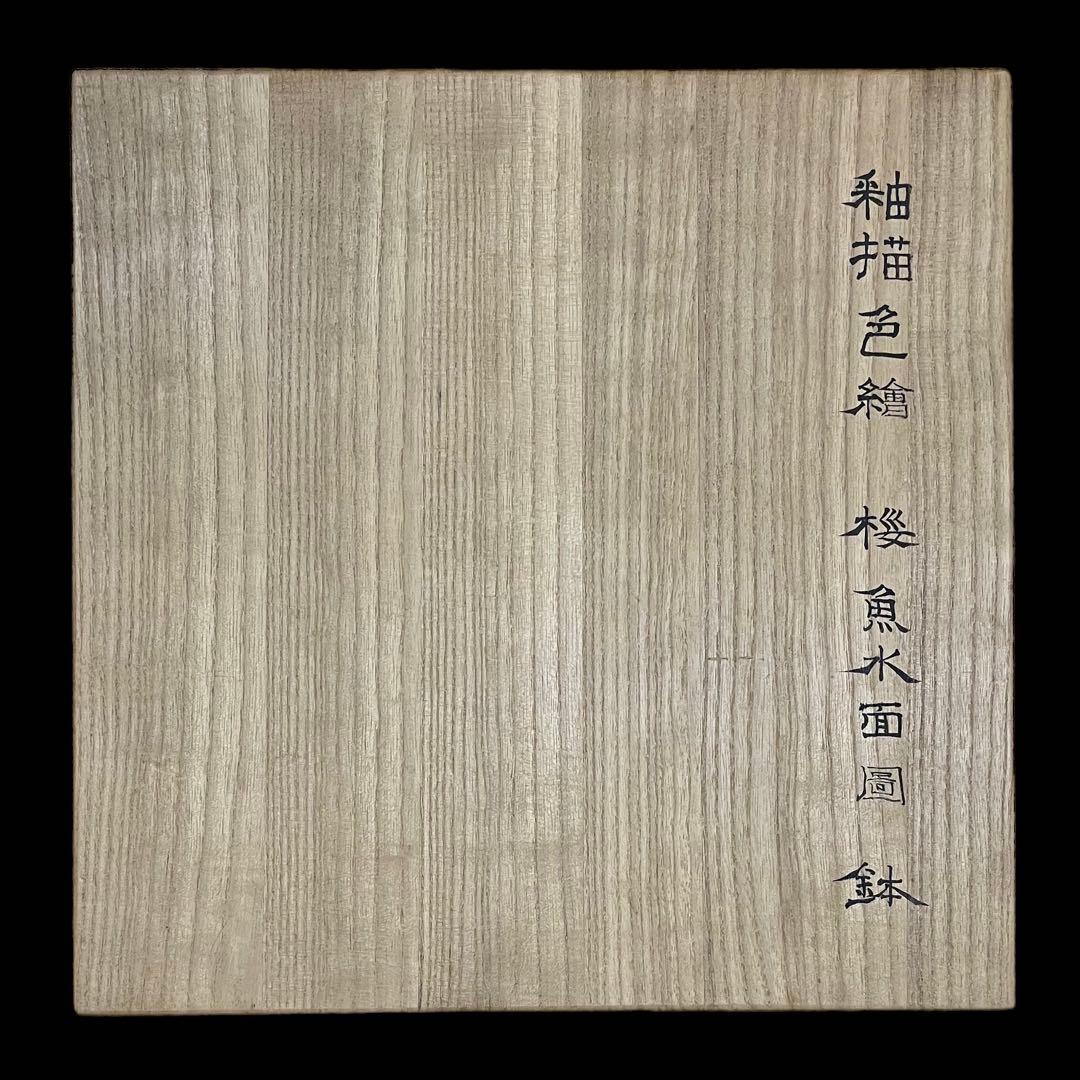 釉描色繪 桜魚水面圖 鉢